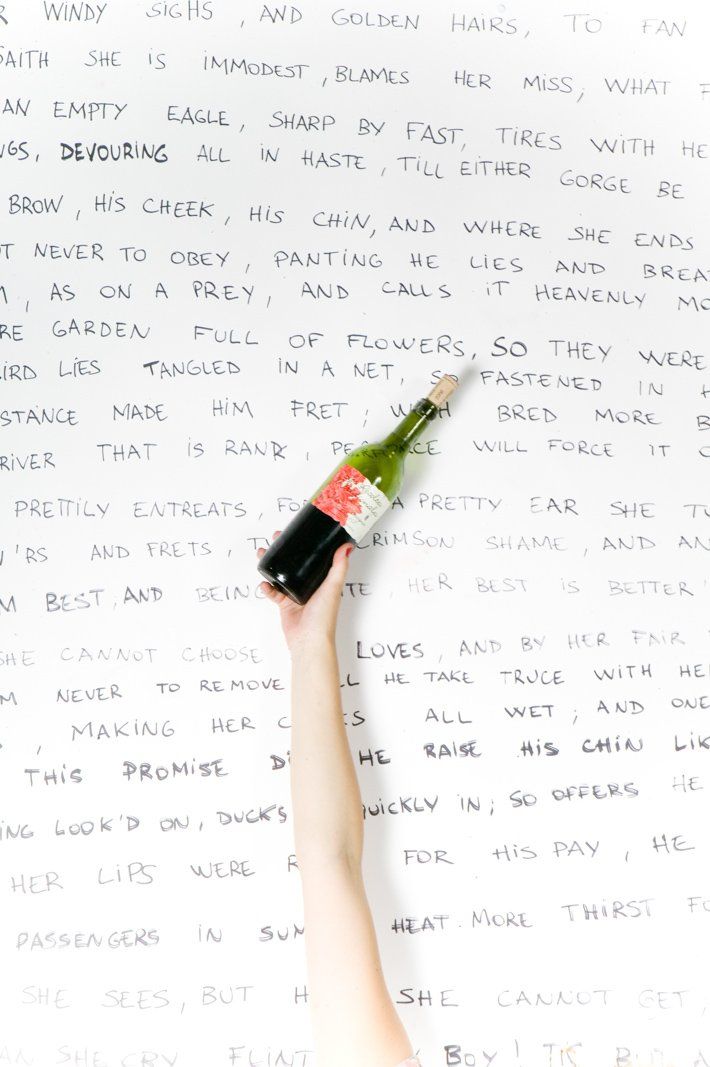 WINDY SIGHS , AND GOLDEN HAIRS, TO FAN
SAITH SHE IS IMMODEST , BLAMES HER MISS; WHAT F
AN EMPTY EAGLE, SHARP BY FAST, TIRES WITH HE
NGS, DEVOURING ALL IN HASTE , TILL EITHER GORGE BE
BROW , HIS CHEEK , HIS CHIN, AND WHERE SHE ENDS
T NEVER TO OBEY , PANTING HE LIES AND BREA
M , AS ON A PREY, AND CALLS IT HEAVENLY MO
RE GARDEN FULL OF FLOWERS, SO THEY WERE
IRD LIES TANGLED IN A NET, SO FASTENED IN H
STANCE MADE HIM FRET ; WH H BRED MORE B
RIVER THAT IS RANK , PE CE WILL FORCE IT O
PRETTILY ENTREATS, FO A PRETTY EAR SHE TU
'RS AND FRETS, TW CRIMSON SHAME, AND AN
M BEST, AND BEING TE , HER BEST IS BETTER'
SHE CANNOT CHOOSE LOVES, AND BY HER FAIR
M NEVER TO REMOVE LL HE TAKE TRUCE WITH HE
, MAKING HER C S ALL WET ; AND ONE
THIS PROMISE DI HE RAISE HIS CHIN LIK
ING LOOK'D ON, DUCKS QUICKLY IN; SO OFFERS HE
HER LIPS WERE R FOR HIS PAY , HE
PASSENGERS IN SUM HEAT. MORE THIRST FO
SHE SEES, BUT H SHE CANNOT GET,
AN SHE CRY FLINT BOY!